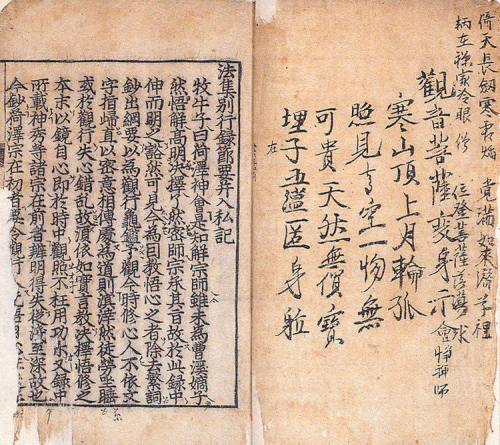 倚天長劒寒
覺滿如來
柄在 家冷眼僧
位登菩薩 求
觀音菩薩变身示
寒山頂上月輪孤
照見 空一物無
可貴天然無價寶
埋子五 身
在
法集別行錄節要幷入私記
牧牛子曰荷澤神會是知解宗師雖未爲曹溪嫡子
然悟解高明決擇了然密師宗承其旨故於此錄中
伸而明之豁然可見今爲因教悟心之者除去繁詞
鈔出綱要以爲觀行龜鑑予觀今時修心人不依文
字指歸直以密意相傳處爲道則溟涬然徒勞坐睡
或於觀行失心錯亂故須依如實言教決擇悟修之
本末以鏡自心即於時中觀照不枉用功尒又錄中
所載神秀等諸宗在前者辨明得失從淺至深故也
今鈔荷澤宗在初者要令觀行人